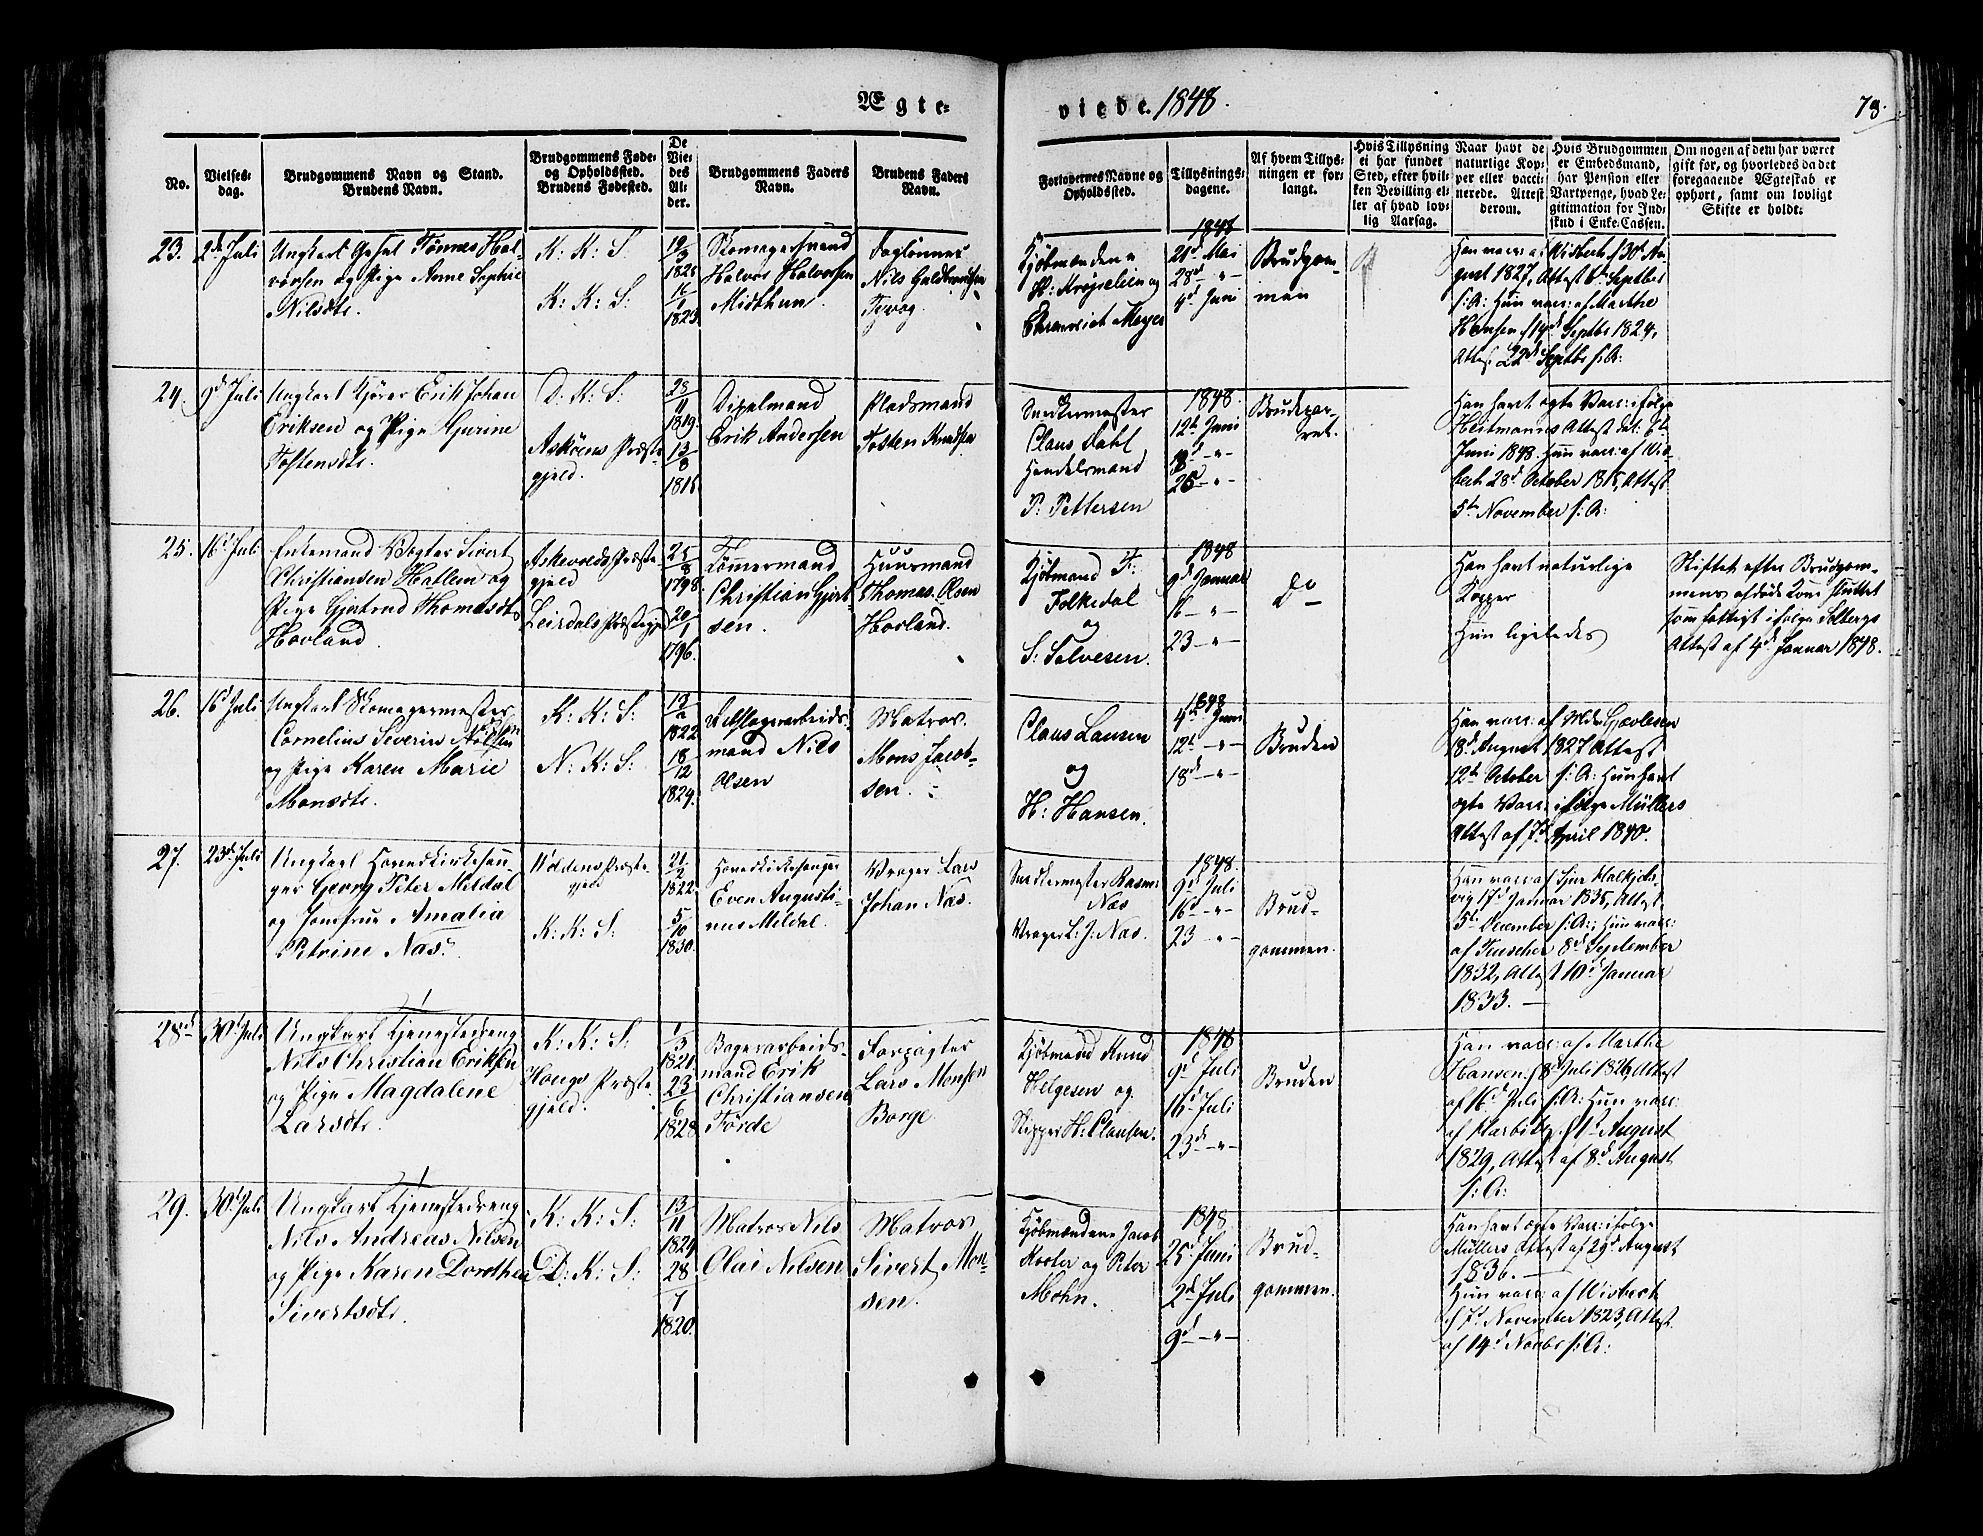 Ægte-
viede. 1848.
78.
No.
Vielses-
dag.
Brudgommens Navn og Stand.
Brudens Navn.
Brudgommens Føde-
og Opholdssted.
Brudens Fødested.
De
Vie-
des
Al-
der.
Brudgommens Faders
Navn.
Brudens Faders
Navn.
Forlovernes Navne og
Opholdssted.
Tillysnings-
dagene.
Af hvem Tillys-
ningen er for-
langt.
Hvis Tillysning
ei har fundet
Sted, efter hvil-
ken Bevilling el-
ler af hvad lov-
lig Aarsag.
Naar havt de
naturlige Kop-
per eller vacci-
nerede. Attest
derom.
Hvis Brudgommen
er Embedsmand,
har Pension eller
Vartpenge, hvad Le-
gitimation for Ind-
skud i Enke-Cassen.
Om nogen af dem har været
gift før, og hvorledes da det
foregaaende Ægteskab er
ophørt, samt om lovligt
Skifte er holdt.
23.
2d Juli
Ungkarl Gesel Tønnes Hal-
vorsen og Pige Anne Sophie
Nilsdt.
K: K: S:
K: K: S:
Skomagersvend
Halvor Halvorsen
Midthun
Nils
1848
21d Mai
28d -"-
4d Juni
Kjøbmændene
og
Meyer
Brudgom-
men
Han vacc: af Wisbech d 30d Au-
gust 1827, Attest Septbr
s: A: Hun vacc: af Marthe
Hansen d 14d Septbr 1824,
Attest 22d Septbr s: A:
24.
9d Juli
Ungkarl Kjører Erik Johan
Eriksen og Pige Gurine
Tostensdt.
D. K: S:
Askøens Præste-
gjeld.
23/11
1819.
13/8
1815
Erik Andersen
Pladsmand
Tosten Knudsen
Snedkermester
Claus Dahl
Handelsmand
P: Pettersen
1848.
12t Juni
18 -"-
25 -"-
Brudepar-
ret.
Han havt ægte Vacc: ifølge
Heitmanns Attest dat:
Juni 1848. Hun vacc: af Wis-
bech 28d October 1815, Attest
5te November s: A:
25.
16d Juli
Enkemand Vogter Sivert
Christiansen Hatlem og
Pige Gjertrud Thomasdt
Hovland.
Askevolds Præste-
gjeld
Leirdals Præstegjd
25/8
1798.
20/1
1796.
Tømmermand
Christian Gjert-
sen.
Huusmand
Thomas Olsen
Hovland.
Kjøbmand F:
Folkedal
og
S: Solvesen.
1848
9d Januar
16 -"-
23 -"-
Do
Han havt naturlige
Kopper
Hun ligeledes
Skiftet efter Brudgom-
mens afdøde Kone sluttet
som fattig ifølge Solbergs
Attest af 4d Januar 1848.
26.
16d Juli
Ungkarl Skomagermester
Cornelius Severin Nilsen
og Pige Karen Marie
Monsdt.
K: K: S:
N: K: S:
1822
18/12
1824.
mand Nils
Olsen
Matros
Mons Jacob-
sen.
Claus Lausen
og
H: Hansen.
1848
4d Juni
12t -"-
18d -"-
Bruden
Han vacc: af Md: Gjevlesen
18d August 1827 Attest
12t October s: A: Hun havt
ægte Vacc: ifølge Müllers
Attest af 7d April 1840.
27.
23d Juli
Ungkarl Hovedkirkesan-
ger Georg Peter Meldal
og Jomfrue Amalia
Petrine Nas.
Præste-
gjeld
K: K: S:
21/2
1822.
5/10
1830.
Hovedkirkesanger
Even Augusti-
nus Meldal.
Vrager Lars
Johan Nas.
Sadlermester Rasm:
Nas
Vrager L: J: Nas.
1848.
9d Juli
16d -"-
23 -"-
Brud-
gommen.
Han vacc: af
vig 17d Januar 1835, Attest
5te December s: A:; Hun vacc:
af Tuscher 8d September
1832, Attest 10d Januar
1833. —
28d
30d Juli
Ungkarl Tjenestedreng
Nils Christian Eriksen
og Pige Magdalene
Larsdt.
K: K: S:
Hougs Præste-
gjeld.
1/3
1821
23/6
1828
Bagerarbeids-
mand Erik
Christiansen
Førde
Forpagter
Lars Monsen
Borge.
Kjøbmand Knud
Helgesen og
Skipper H: Clausen.
1848
9d Juli
16d Juli
23d -"-
Bruden
Han vacc: af Marthe
Hansen d 8d Juli 1826, Attest
af 16d Juli s: A: Hun vacc:
af d 1t August
1829, Attest af 8d August
s: A:
29.
30d Juli
Ungkarl Tjenestedreng
Nils Andreas Nilsen
og Pige Karen Dorothea
Sivertsdt.
K: K: S:
D: K: S:
13/11
1824
28/7
1820.
Matros Nils
Olai Nilsen
Matros
Sivert Mon-
sen.
Kjøbmændene Jacob
Koster og Peter
Mohn.
1848.
25d Juni
2d Juli
9d -"-
Brud-
gommen.
Han havt ægte Vacc: ifølge
Müllers Attest af 29d August
1836. —
Hun vacc: af Wisbech
d 7d November 1823, Attest
af 14d Novbr s: A: